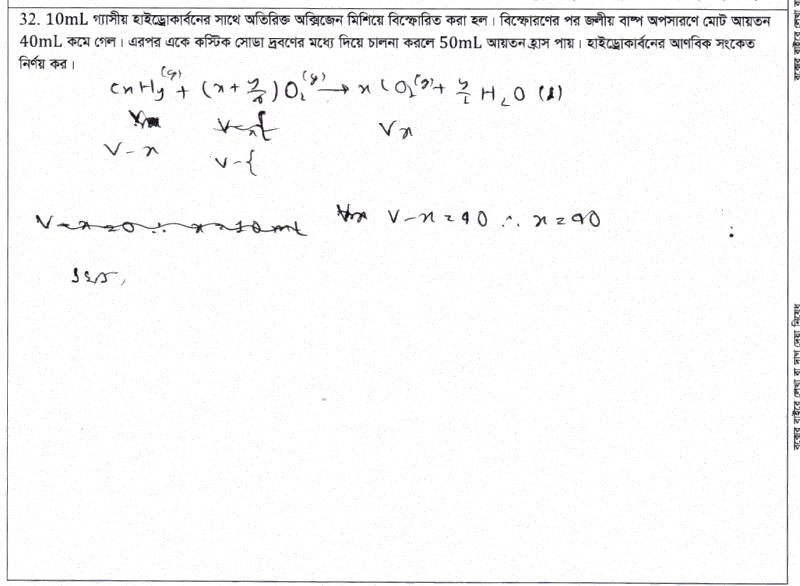 32. 10mL গ্যাসীয় হাইড্রোকার্বনের সাথে অতিরিক্ত অক্সিজেন মিশিয়ে বিস্ফোরিত করা হল। বিস্ফোরণের পর জলীয় বাষ্প অপসারণে মোট আয়তন
40mL কমে গেল। এরপর একে কস্টিক সোডা দ্রবণের মধ্যে দিয়ে চালনা করলে 50mL আয়তন হ্রাস পায়। হাইড্রোকার্বনের আণবিক সংকেত
নির্ণয় কর।
CxHy(g) + (x + y/4) O2(g) → x CO2(g) + y/2 H2O (l)
Vx
V - x
V - {
V - x = 0 ∴ x = 10 ml
V - x = 90 ∴ x = 90
বক্সের বাইরে লেখা বা দাগ দেয়া নিষেধ